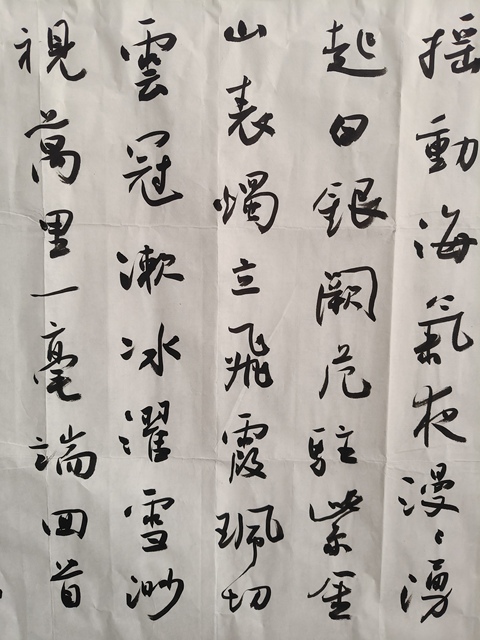 摇動海氣夜漫〻湧
起白銀闕危駐紫金
山表獨立飛霞珮切
雲冠漱冰濯雪渺
視萬里一毫端回首